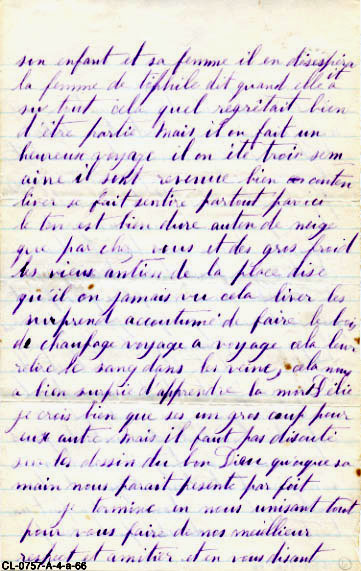 son enfant et sa femme il en désespéra
la femme de téophile dit quand elle a
su tout cela quel regrêtait bien
d'être partie mais il on fait un
heureux voyage il on été trois sem
aine il sont revenue bien conten
liver se fait sentire partout par ici
le ton est bien dure auten de neige
que par chez vous et des gros froid
les vieux antien de la place dise
qu'il on jamais vu cela liver les
surprend accoutumé de faire le bois
de chaufage voyage a voyage cela leur
retire le sang dans les veine, cela nous
a bien surprie d'apprendre la mort
je crois bien que ses un gros coup pour
eux autre mais il faut pas discuté
sur les dessin du bon Dieu quoique sa
main nous parait pesente par foit
je termine en nous unisant tout
pour vous faire de nos meillieur
respect et amitier et en vous disant
CL-0757-A-4-a-66